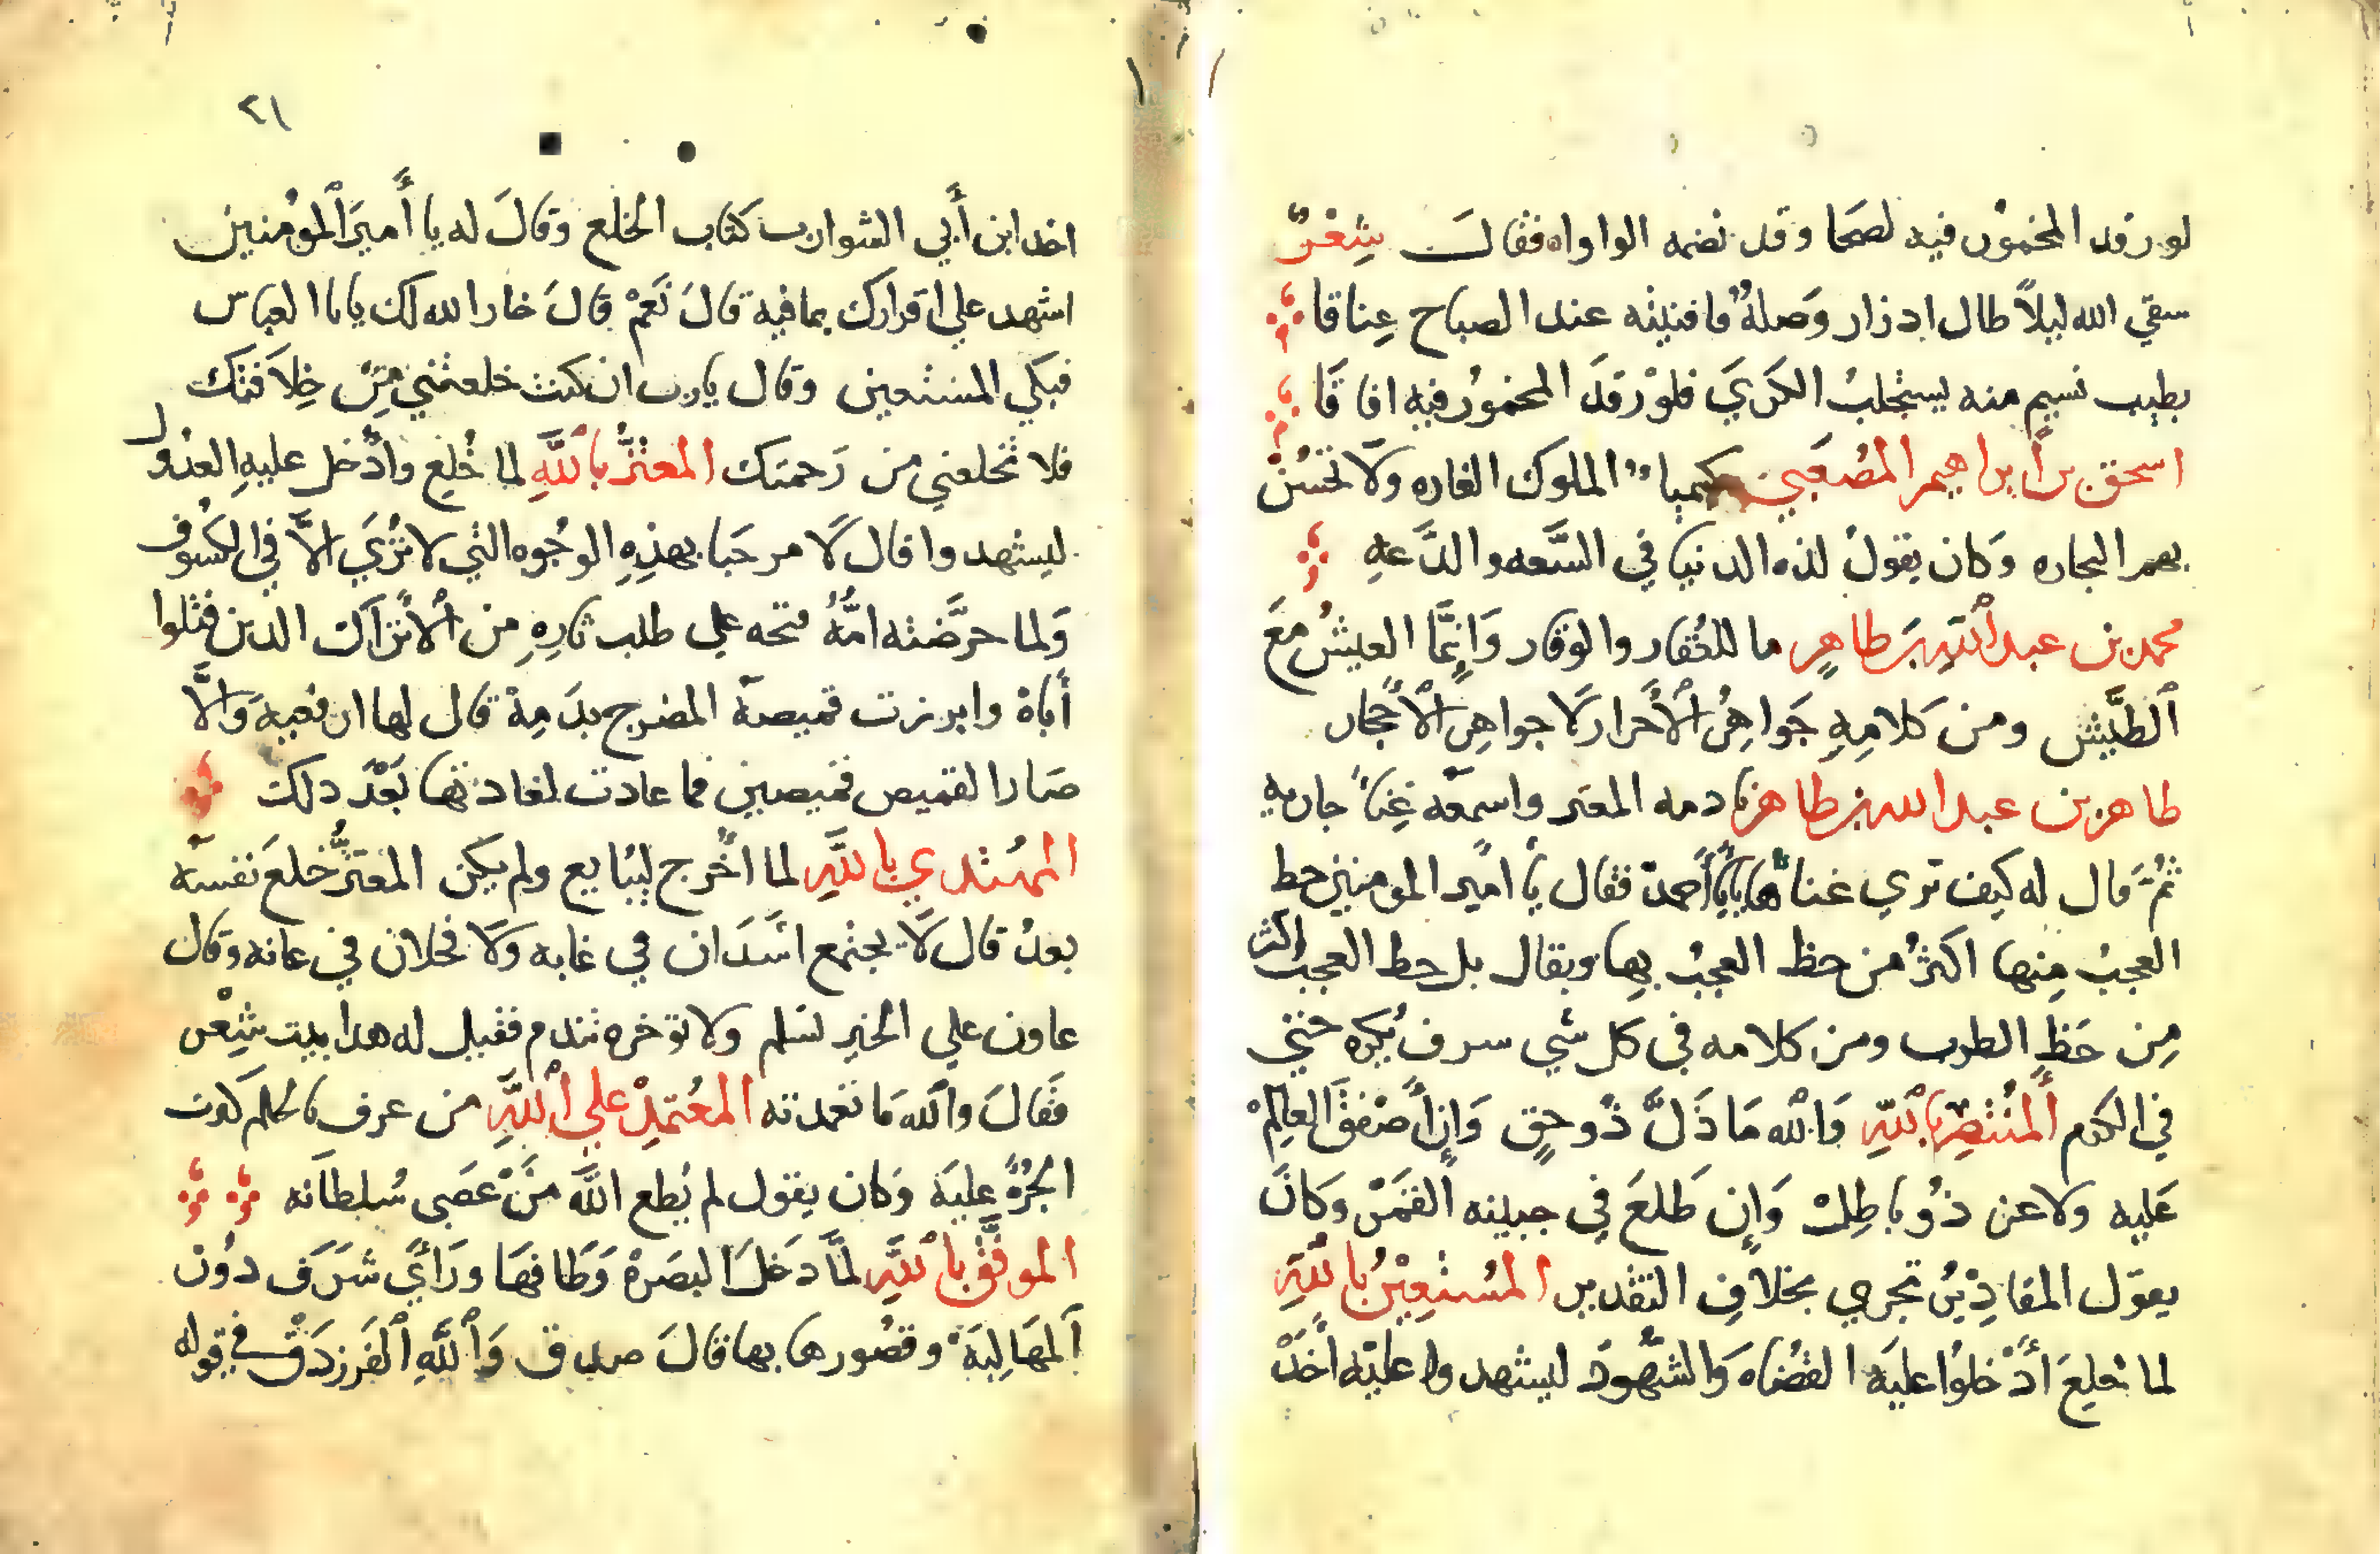 لو رقد المخمور فيه لصحا وقد نضمه الواواه فقالــ شِعْرٌ
سقي الله ليلاً طال اذ زار وَصلهُ فافنيته عند الصباح عِناقا
بطيب نسيم منه يستجلبُ الكَرَيَ فلوْ رَقدَ المخمورُ فيه افاقَا
اسحق بن أبراهيم المصُعَبي كيميا الملوك الغاره ولَا تحَسُنُ
بهم التجاره وَكان يقولُ لذه الدنيا في السَّعه والدَّعهِ
محمد بن عبد اللهِ بن طاهرٍ ما للعُقار والوقار وَإنِمَّا العيشُ معَ
اَلطَّيش ومن كلامِهِ جَواهِرُ الْأَحْرار لَا جواهِر الْأحجْار
طاهر بن عبد الله بن طاهر نادمه المعتز واسمعَه غِناً جاريه
ثمُ قال له كيف تري غناها يا أبا أحمد فقال يا أمير المومنين حط
العجبُ مِنها اكثرُ من حظ العجبُ بِها ويقال بل حط العجب اكثر
مِن حَظِ الطرب ومن كلامه في كل شي سرف يُكره حتي
في الكرم أَلمنُتصِر بِاللهِ وَاللهِ مَا ذَلَّ ذُو حقٍ وَإن أَصْفقَ العالِمْ
عَليه ولا عن ذُو باطِلْ وَإن طَلعَ في جبينه القمَرْ وَكانَ
يقوَل المقادِيُر تجري بخلافِ التقدير المسُتعِيْنُ بِاللهَّ
لما خُلِعَ أدْخلوُا عليَه القضُاه وَالشهُّودَ ليشهدوا عليَه أخَذَ
٢١
اخد ابن أَبي الشوارب كتاب الخلع وَقالَ له يا أَميرَ اْلموُمنين
اشهد علي اقرارك بما فيه قالَ نَعَمْ قالَ خار الله لك يا با العباس
فبكي المستعين وَقال يارب ان كنت خلعتني مِنْ خِلاَفتك
فلا تخلعني من رَحمتك المعتزُّ بِاللَّهِ لما خُلع وأدُخل عليهِ العدُول
ليشهدوا قال لَا مرحَبا بهذِهِ الوجُوه التي لا تُرَيَ الاَّ في الكسُوف
وَلما حرَّضته امُّهُ قبحه علي طلب ثارِهِ مِن الْأتَراَك الدين قتلوا
أَباهْ وابرزت قميصهَ المضرج بدَمِهْ قال لها ارفعيهَ وَالَّا
صَار القميص قميصين فما عادت لعادتها بَعْدَ دلك
المهُتدي بِاللَّهِ لما اخُرج ليبُايع ولم يكن المعتَزُّ خلعَ نفسَه
بعدُ قال لَا يجتمع اسَدَان في غابه ولَا فحلان في عانه وقال
عاون علي الخير تسلم ولا توخره تندم فقيل له هدا بيت شِعْر
فَقالَ وَالله مَا تعمدته المعُتمِدْ علي اللَّهِ من عرف بالحلم كثرت
الجُرأَةُ عليَه وَكان يقول لم يُطع اللهَّ مَنْ عَصَي سُلطانَه
الموفَّقْ بِاللَّهِ لمَّا دَخلَ البصَرهْ وَطَافهَا ورَأيَ شرَف دُوْن
اَلمهَالِبَهْ وقصُورها بها قالَ صدق وَاللَّهِ اَلفَرزدَقْ في قوله